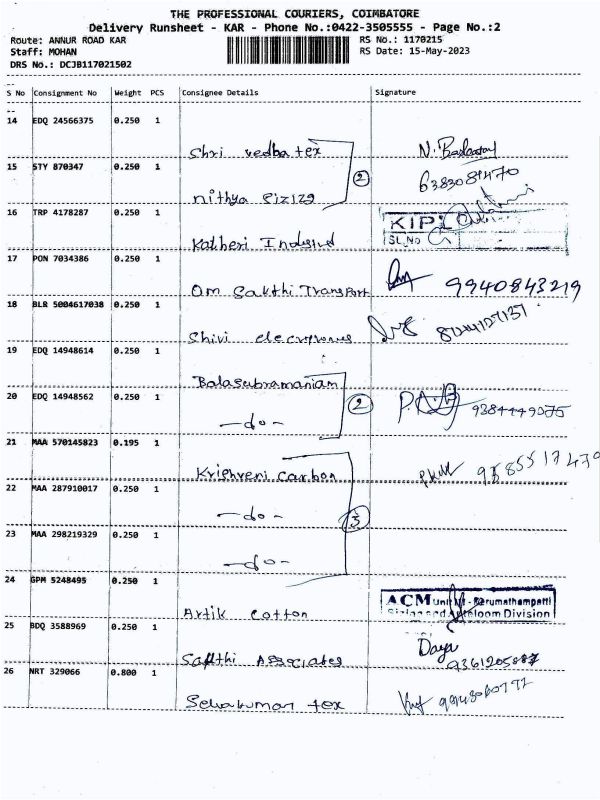 THE PROFESSIONAL COURIERS, COIMBATORE
Delivery Runsheet - KAR - Phone No.:0422-3505555 - Page No.:2
Route: ANNUR ROAD KAR RS No.: 1170215
Staff: MOHAN RS Date: 15-May-2023
DRS No.: DCJB117021502
S No Consignment No Weight PCS Consignee Details Signature
14 EDQ 24566375 0.250 1
Shri vedba tex N.
15 STY 870347 0.250 1 2 6383081470
Nithya
16 TRP 4178287 0.250 1 KIPL
Katheri SL.No
17 PON 7034386 0.250 1
Om Sakthi Transport 9940843219
18 BLR 5004617038 0.250 1
Shivi
19 EDQ 14948614 0.250 1
Balasubramaniam
20 EDQ 14948562 0.250 1 2 9384449075
-do-
21 MAA 570145823 0.195 1
Krishveni carbon
22 MAA 287910017 0.250 1
-do- 3
23 MAA 298219329 0.250 1
-do-
24 GPM 5248495 0.250 1 ACM Unit Karumathampatti
Artik cotton Division
25 BDQ 3588969 0.250 1 Daya
Sakthi Associates
26 NRT 329066 0.800 1
Selvakumar tex